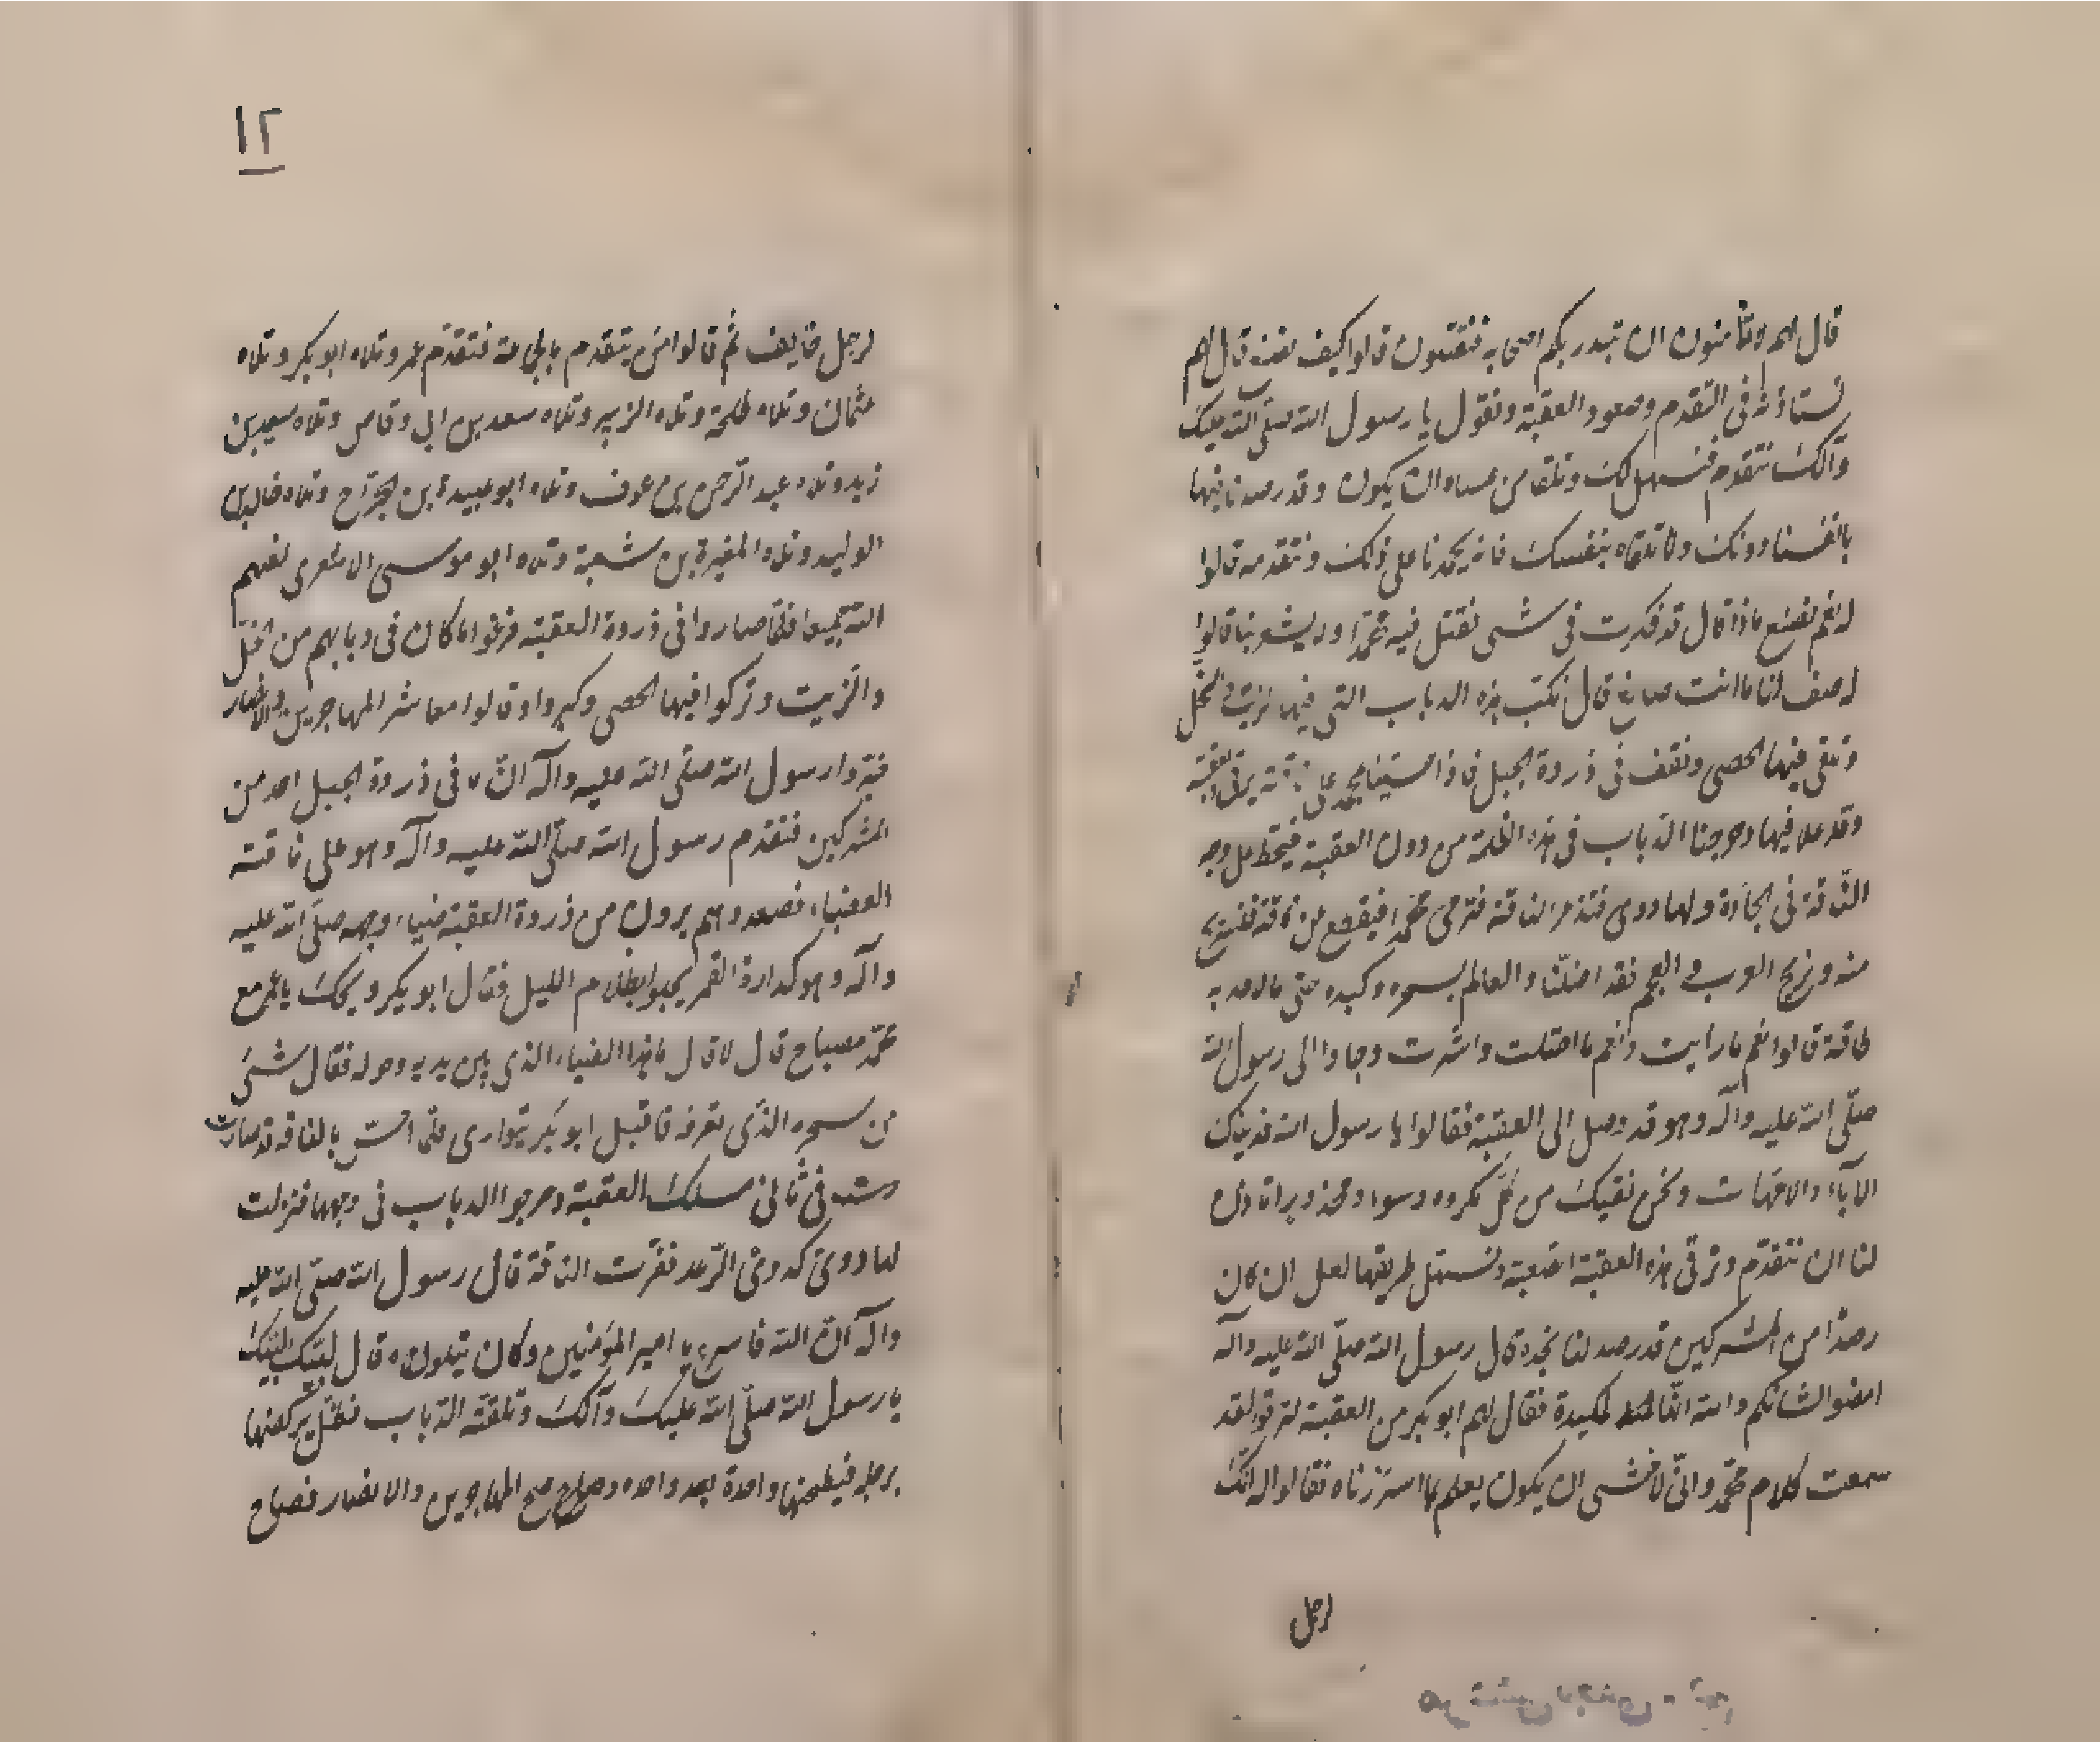 قال لهم ولا تأمنون ان تبدر بكم اصحابه فتقتلون قالوا كيف نصنع قال لهم
نستاذنه فى التقدم وصعود العقبة ونقول يا رسول الله صلّى الله عليك
وآلك نتقدم فنسهل لك ونلقا من عساه ان يكون وقد رصدنا فيها
بانفسنا دونك ولا تلقاه بنفسك فانه يحمدنا على ذلك ونتقدمه قالوا
له نعم نصنع ماذا قال قد فكرت فى شىء نقتل فيه محمّدا ولا يشعر بنا قالوا
له صف لنا ما انت صانع قال نكبّ هذه الدباب التى فيها الزيت والخل
ونلقى فيها الحصى ونقف فى ذروة الجبل فاذا محمد على ناقته يرقى العقبة
وقد علا فيها دحرجنا الدباب فى هذه الظلمة من دون العقبة فتحط على وجه
النّاقة فى الجادة ولها دوى فتذعر الناقة فترمى محمّدا فيقطع من ناقته فنستريح
منه ونريح العرب والعجم فقد اضلّنا والعالم بسحره وكيده حتى ما لاحد به
طاقة قالوا نعم ما رايت ونعم ما احتلت واشرت وجاوا الى رسول الله
صلّى الله عليه وآله وهو قد وصل الى العقبة فقالوا يا رسول الله فديناك
الآباء والامّهات ونحن نقيك من كلّ مكروه وسوء ومحذور اتاذن
لنا ان نتقدّم ونرقّى هذه العقبة الصعبة ونسهل طريقها لعل ان كان
رصدا من المشركين قد رصد لنا نجده قال رسول الله صلّى الله عليه وآله
امضوا لشانكم والله انّها لمكيدة فقال لهم ابو بكر من العقبة لقد
سمعت كلام محمّد وانّى لاخشى ان يكون يعلم بما اسررناه فقالوا له انّك
رجل
١٢
رجل خايف ثم قالوا من يتقدم بالدبابة فتقدّم عمر وتلاه ابو بكر وتلاه
عثمان وتلاه طلحة وتلاه الزبير وتلاه سعد بن ابى وقاص وتلاه سعيد بن
زيد وتلاه عبد الرّحمن بن عوف وتلاه ابو عبيدة ابن الجرّاح وتلاه خالد بن
الوليد وتلاه المغيرة بن شعبة وتلاه ابو موسى الاشعرى لعنهم
الله جميعا فلمّا صاروا فى ذروة العقبة فرغوا ما كان فى دبابهم من الخلّ
والزيت وتركوا فيها الحصى وكبروا وقالوا معاشر المهاجرين والانصار
خبّروا رسول الله صلّى الله عليه وآله انّ لا فى ذروة الجبل احد من
المشركين فتقدم رسول الله صلّى الله عليه وآله وهو على ناقته
العضباء فصعد وهم يرون من ذروة العقبة ضياء وجهه صلّى الله عليه
وآله وهو كدارة القمر بظلام الليل فقال ابو بكر ويحك يا عمر مع
محمّد مصباح قال لا قال ما هذا الضياء الذى بين يديه وحوله فقال شىء
من سحره الذى تعرفه فاقبل ابو بكر يتوارى فلمّا احسّ بالناقة قد صارت
فى ثانى سلك العقبة دحرجوا الدباب فى وجهها فنزلت
لها دوىّ كدوىّ الرّعد فنفّرت الناقة قال رسول الله صلّى الله عليه
وآله انّ الله فاسرع يا امير المؤمنين وكان يتلوه قال لبّيك لبّيك
يا رسول الله صلّى الله عليك وآلك وتلقّته الدّباب فظلّ يركضها
برجله فيطحنها واحدة بعد واحده وصاح المهاجرين والانصار فصاح